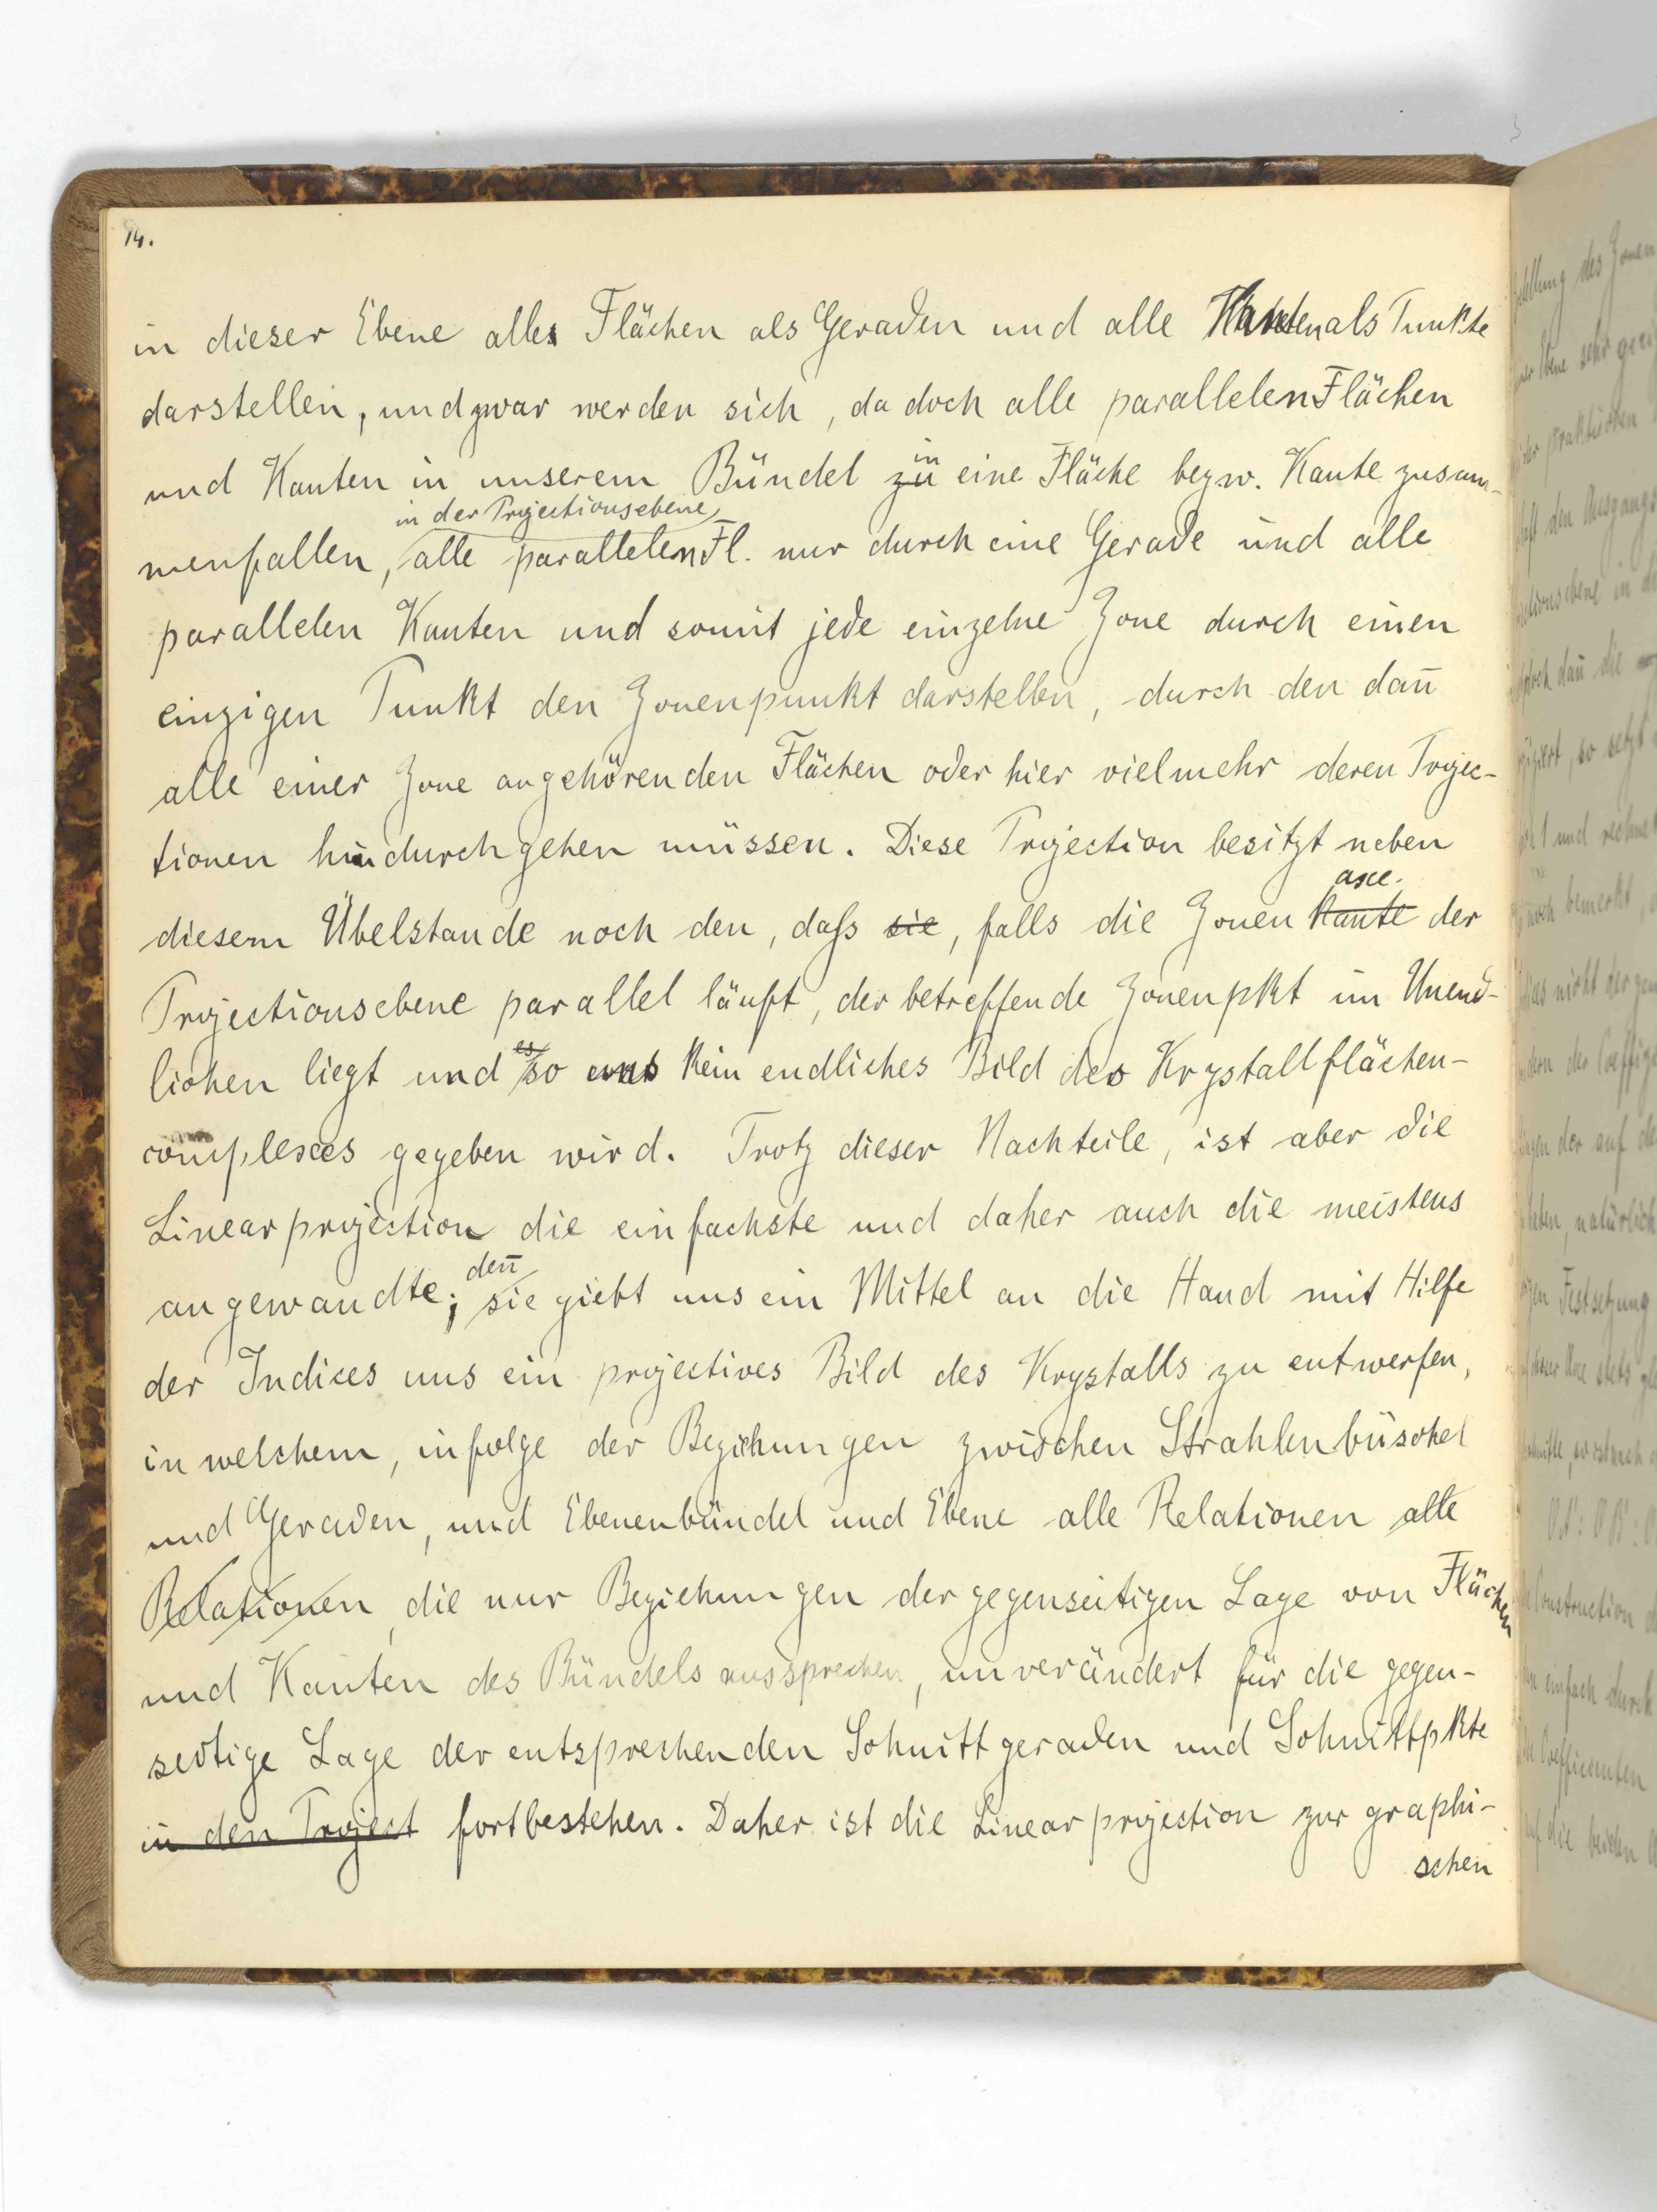 14.
in dieser Ebene alle Flächen als Geraden und alle Kanten als Punkte
darstellen, und zwar werden sich, da doch alle parallelen Flächen
und Kanten in unserem Bündel zu in eine Fläche bezw. Kante zusam-
in der Projectionsebene
menfallen, alle parallelen Fl. nur durch eine Gerade und alle
parallelen Kanten und somit jede einzelne Zone durch einen
einzigen Punkt den Zonenpunkt darstellen, durch den dan̄
alle einer Zone angehörenden Flächen oder hier vielmehr deren Projec-
tionen hindurchgehen müssen. Diese Projection besitzt neben
axe.
diesem Übelstande noch den, daſs sie, falls die Zonen kante der
Projectionsebene parallel läuft, der betreffende Zonenpkt im Unend-
es
lichen liegt und so uns kein endliches Bild des Krystallflächen-
complexes gegeben wird. Trotz dieser Nachteile, ist aber die
Linearprojection die einfachste und daher auch die meistens
den̄
angewandte; sie giebt uns ein Mittel an die Hand mit Hilfe
der Indices uns ein projectives Bild des Krystalls zu entwerfen,
in welchem, infolge der Beziehungen zwischen Strahlenbüschel
und Geraden, und Ebenenbündel und Ebene alle Relationen alle
Relationen, die nur Beziehungen der gegenseitigen Lage von Flächen
und Kanten des Bündels aussprechen, unverändert für die gegen-
seitige Lage der entsprechenden Schnittgeraden und Schnittpkte
in den Project fortbestehen. Daher ist die Linearprojection zur graphi-
schen